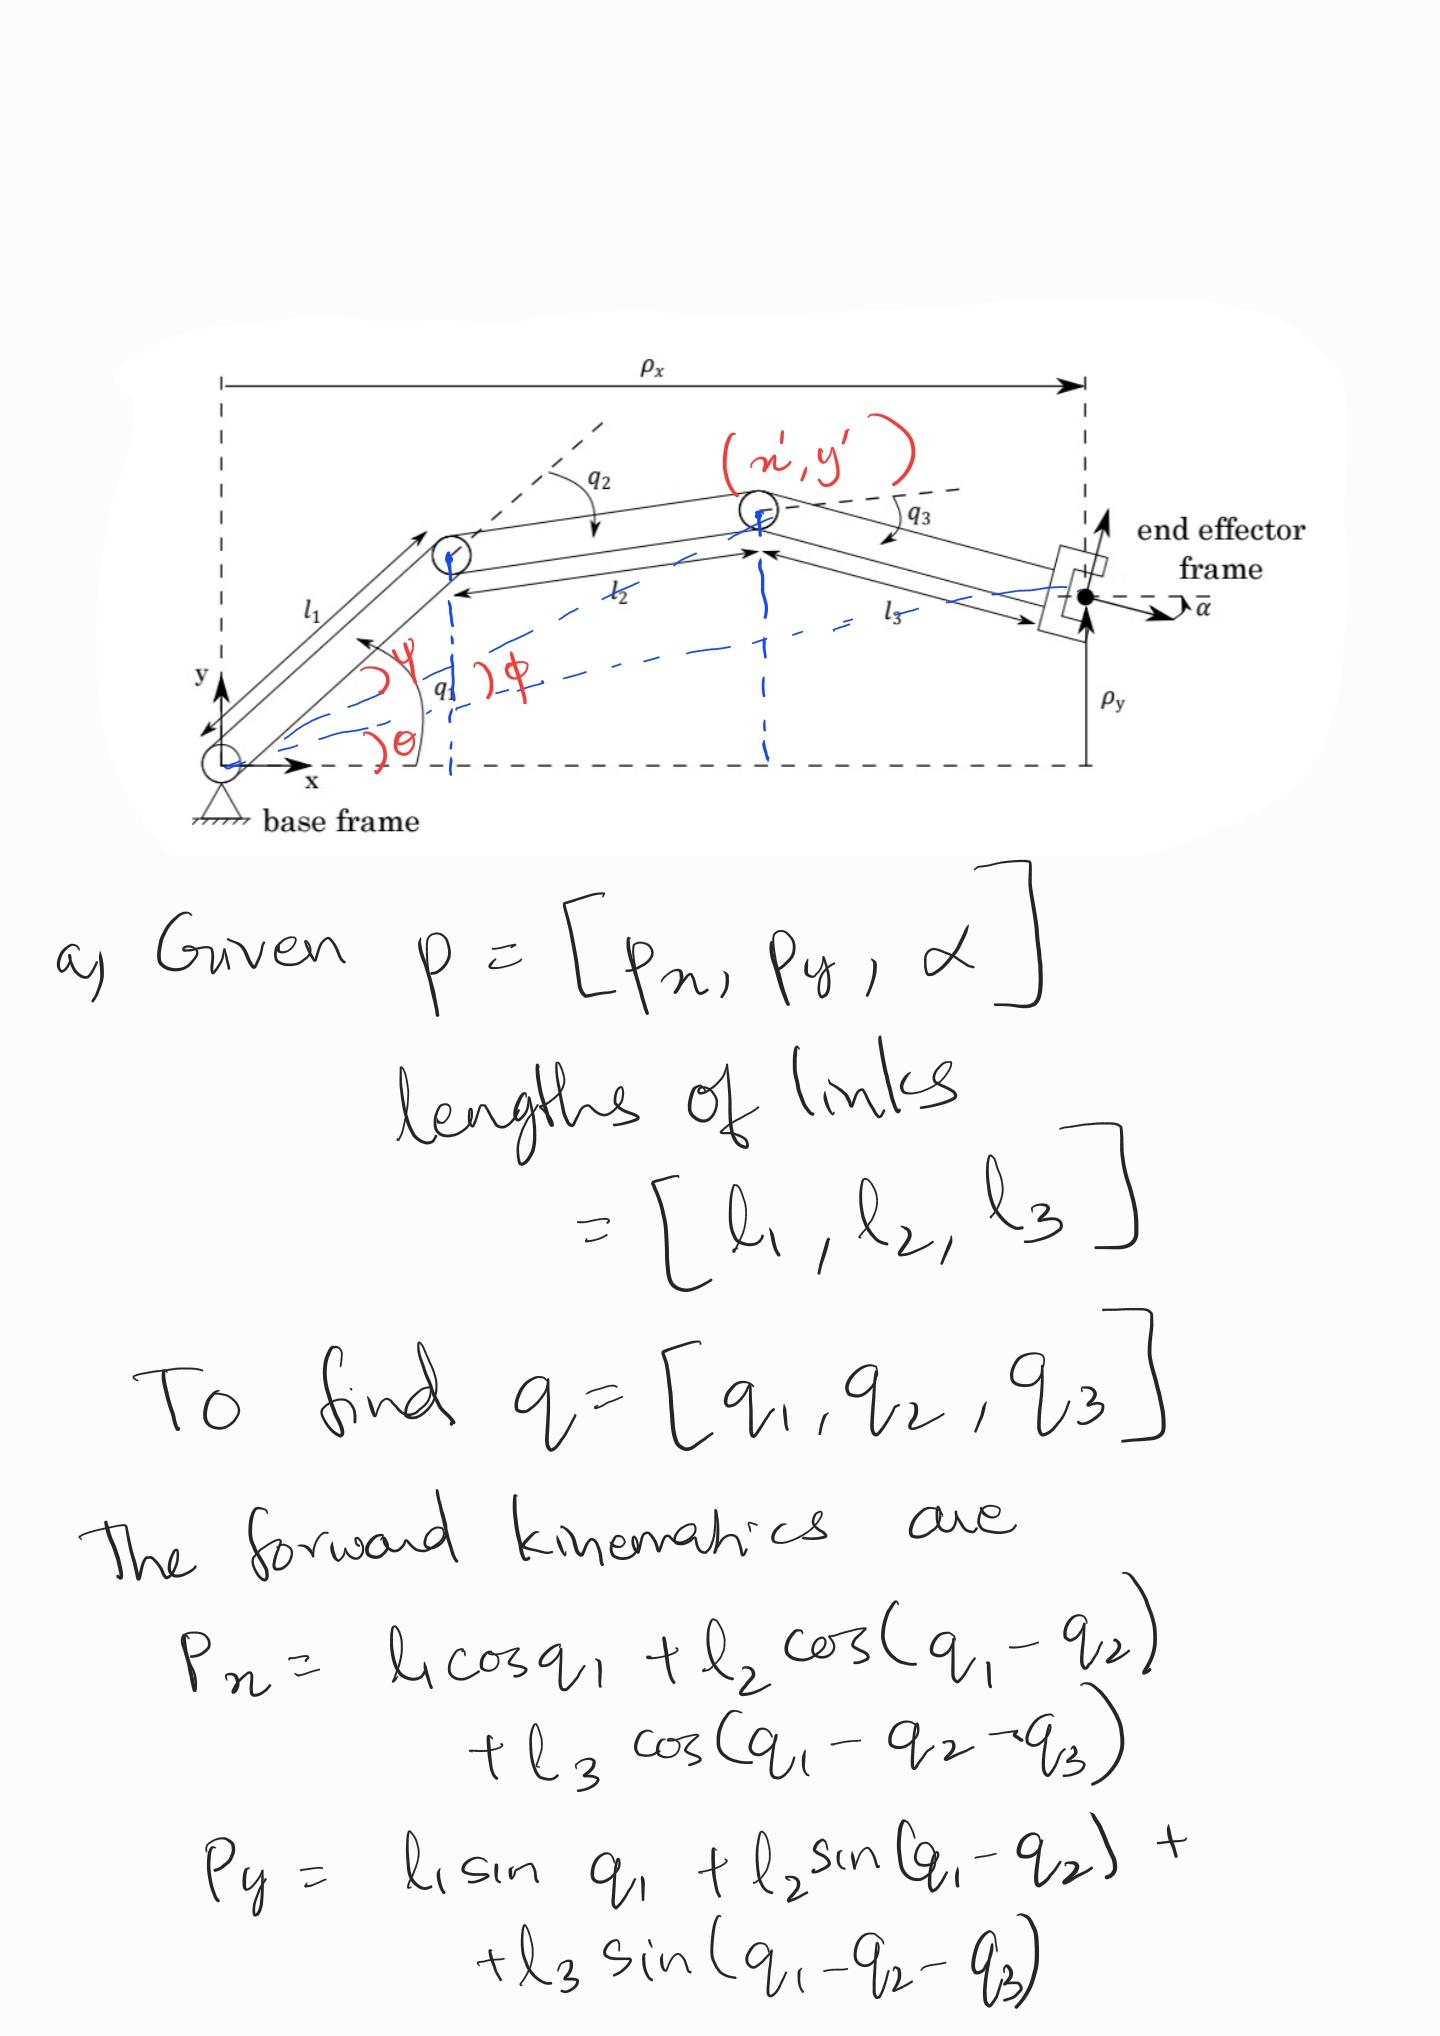 ρx
(x', y')
q2
q3
end effector
frame
α
l1
l2
l3
ψ
ϕ
q1
y
θ
ρy
x
base frame
a) Given p = [px, py, α]
lengths of links
= [l1, l2, l3]
To find q = [q1, q2, q3]
The forward kinematics are
Px = l1 cos q1 + l2 cos(q1 - q2)
+ l3 cos(q1 - q2 - q3)
Py = l1 sin q1 + l2 sin(q1 - q2) +
+ l3 sin(q1 - q2 - q3)